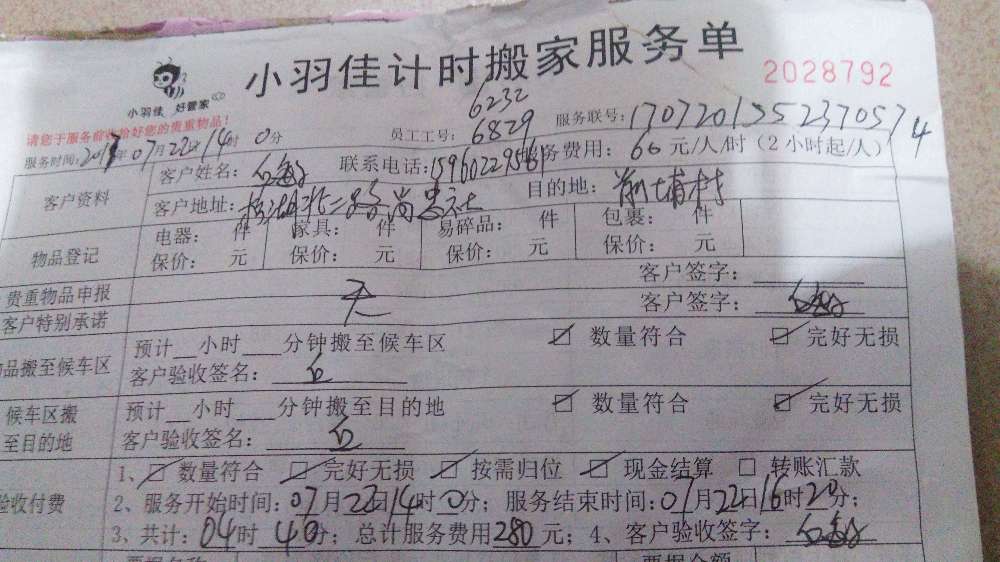 小羽佳计时搬家服务单
小羽佳 好管家
2028792
请您于服务前收拾好您的贵重物品!
6232
员工工号: 6829 服务联号: 170720155237057 4
服务时间: 2017年07月22日14时0分
客户资料 客户姓名: 联系电话: 服务费用: 60元/人/时(2小时起/人)
客户地址: 目的地: 前埔村
物品登记 电器: 件 家具: 件 易碎品: 件 包裹: 件
保价: 元 保价: 元 保价: 元 保价: 元
贵重物品申报 客户签字:
客户特别承诺 无 客户签字:
品搬至候车区 预计__小时___分钟搬至候车区 数量符合 完好无损
客户验收签名: 白
候车区搬 预计__小时___分钟搬至目的地 数量符合 完好无损
至目的地 客户验收签名: 白
1、数量符合 完好无损 按需归位 现金结算 转账汇款
验收付费 2、服务开始时间:07月22日14时0分; 服务结束时间:07月22日16时20分;
3、共计:04时40分; 总计服务费用280元; 4、客户验收签字: